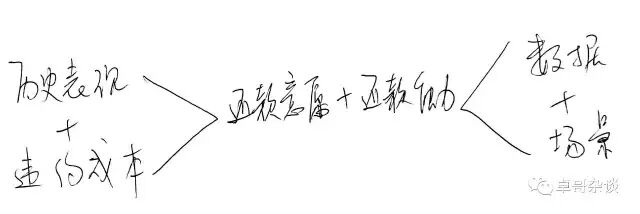 历史表现
+
违约成本
还款意愿+还款能力
数据
+
场景
卓哥杂谈